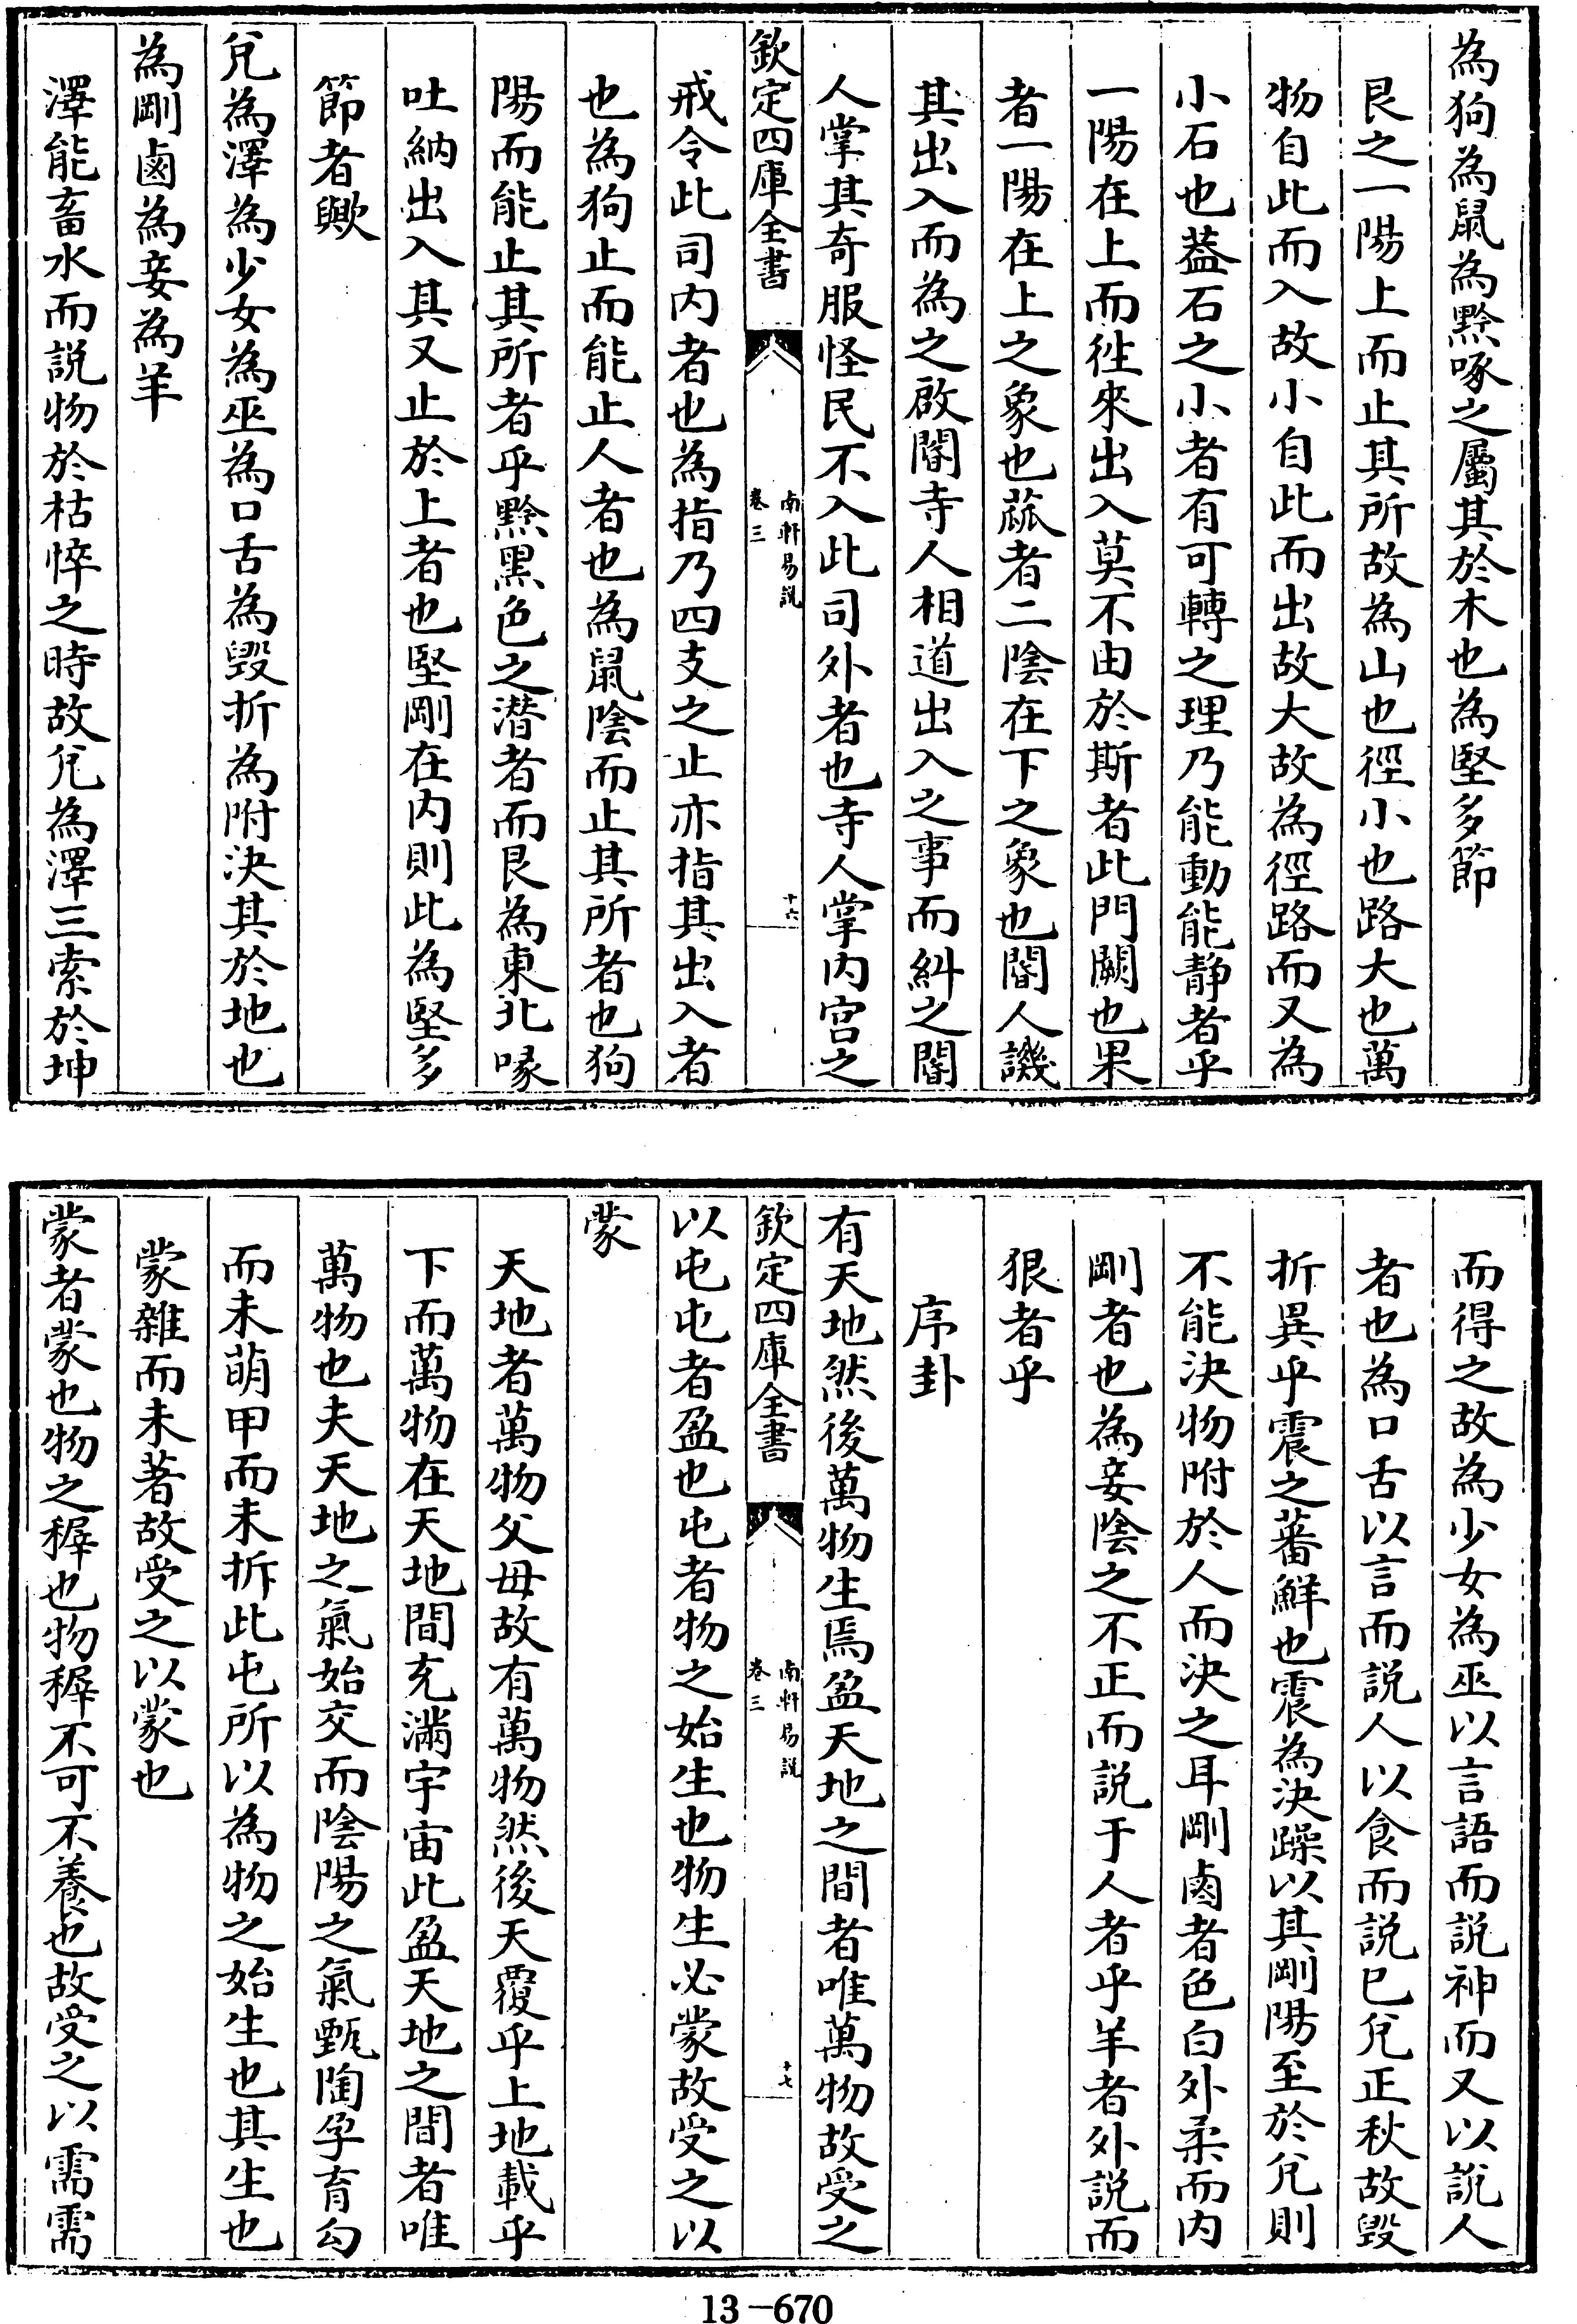 為狗為鼠為黔喙之屬其於木也為堅多節
艮之一陽上而止其所故為山也徑小也路大也萬
物自此而入故小自此而出故大故為徑路而又為
小石也葢石之小者有可轉之理乃能動能静者乎
一陽在上而徃來出入莫不由於斯者此門闕也果
者一陽在上之象也蓏者二陰在下之象也閽人譏
其出入而為之啟閽寺人相道出入之事而糾之閽
人掌其奇服怪民不入此司外者也寺人掌内宫之
欽定四庫全書
南軒易説
卷三
十六
戒令此司内者也為指乃四支之止亦指其出入者
也為狗止而能止人者也為鼠陰而止其所者也狗
陽而能止其所者乎黔黑色之潜者而艮為東北喙
吐納出入其又止於上者也堅剛在内則此為堅多
節者歟
兊為澤為少女為巫為口舌為毁折為附决其於地也
為剛鹵為妾為羊
澤能畜水而説物於枯悴之時故兊為澤三索於坤
而得之故為少女為巫以言語而説神而又以説人
者也為口舌以言而説人以食而説巳兊正秋故毁
折異乎震之蕃鮮也震為决躁以其剛陽至於兊則
不能决物附於人而决之耳剛鹵者色白外柔而内
剛者也為妾陰之不正而説于人者乎羊者外説而
狠者乎
序卦
有天地然後萬物生焉盈天地之間者唯萬物故受之
欽定四庫全書
南軒易説
卷三
十七
以屯屯者盈也屯者物之始生也物生必蒙故受之以
蒙
天地者萬物父母故有萬物然後天覆乎上地載乎
下而萬物在天地間充滿宇宙此盈天地之間者唯
萬物也夫天地之氣始交而陰陽之氣甄陶孕育勾
而未萌甲而未拆此屯所以為物之始生也其生也
蒙雜而未著故受之以蒙也
蒙者蒙也物之穉也物穉不可不養也故受之以需需
13-670